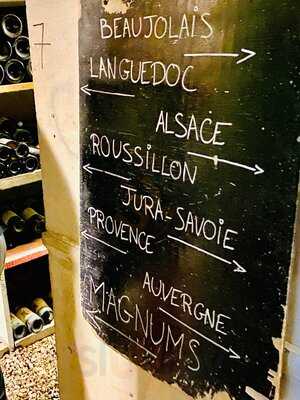 7
BEAUJOLAIS
LANGUEDOC
ALSACE
ROUSSILLON
JURA-SAVOIE
PROVENCE
AUVERGNE
MAGNUMS